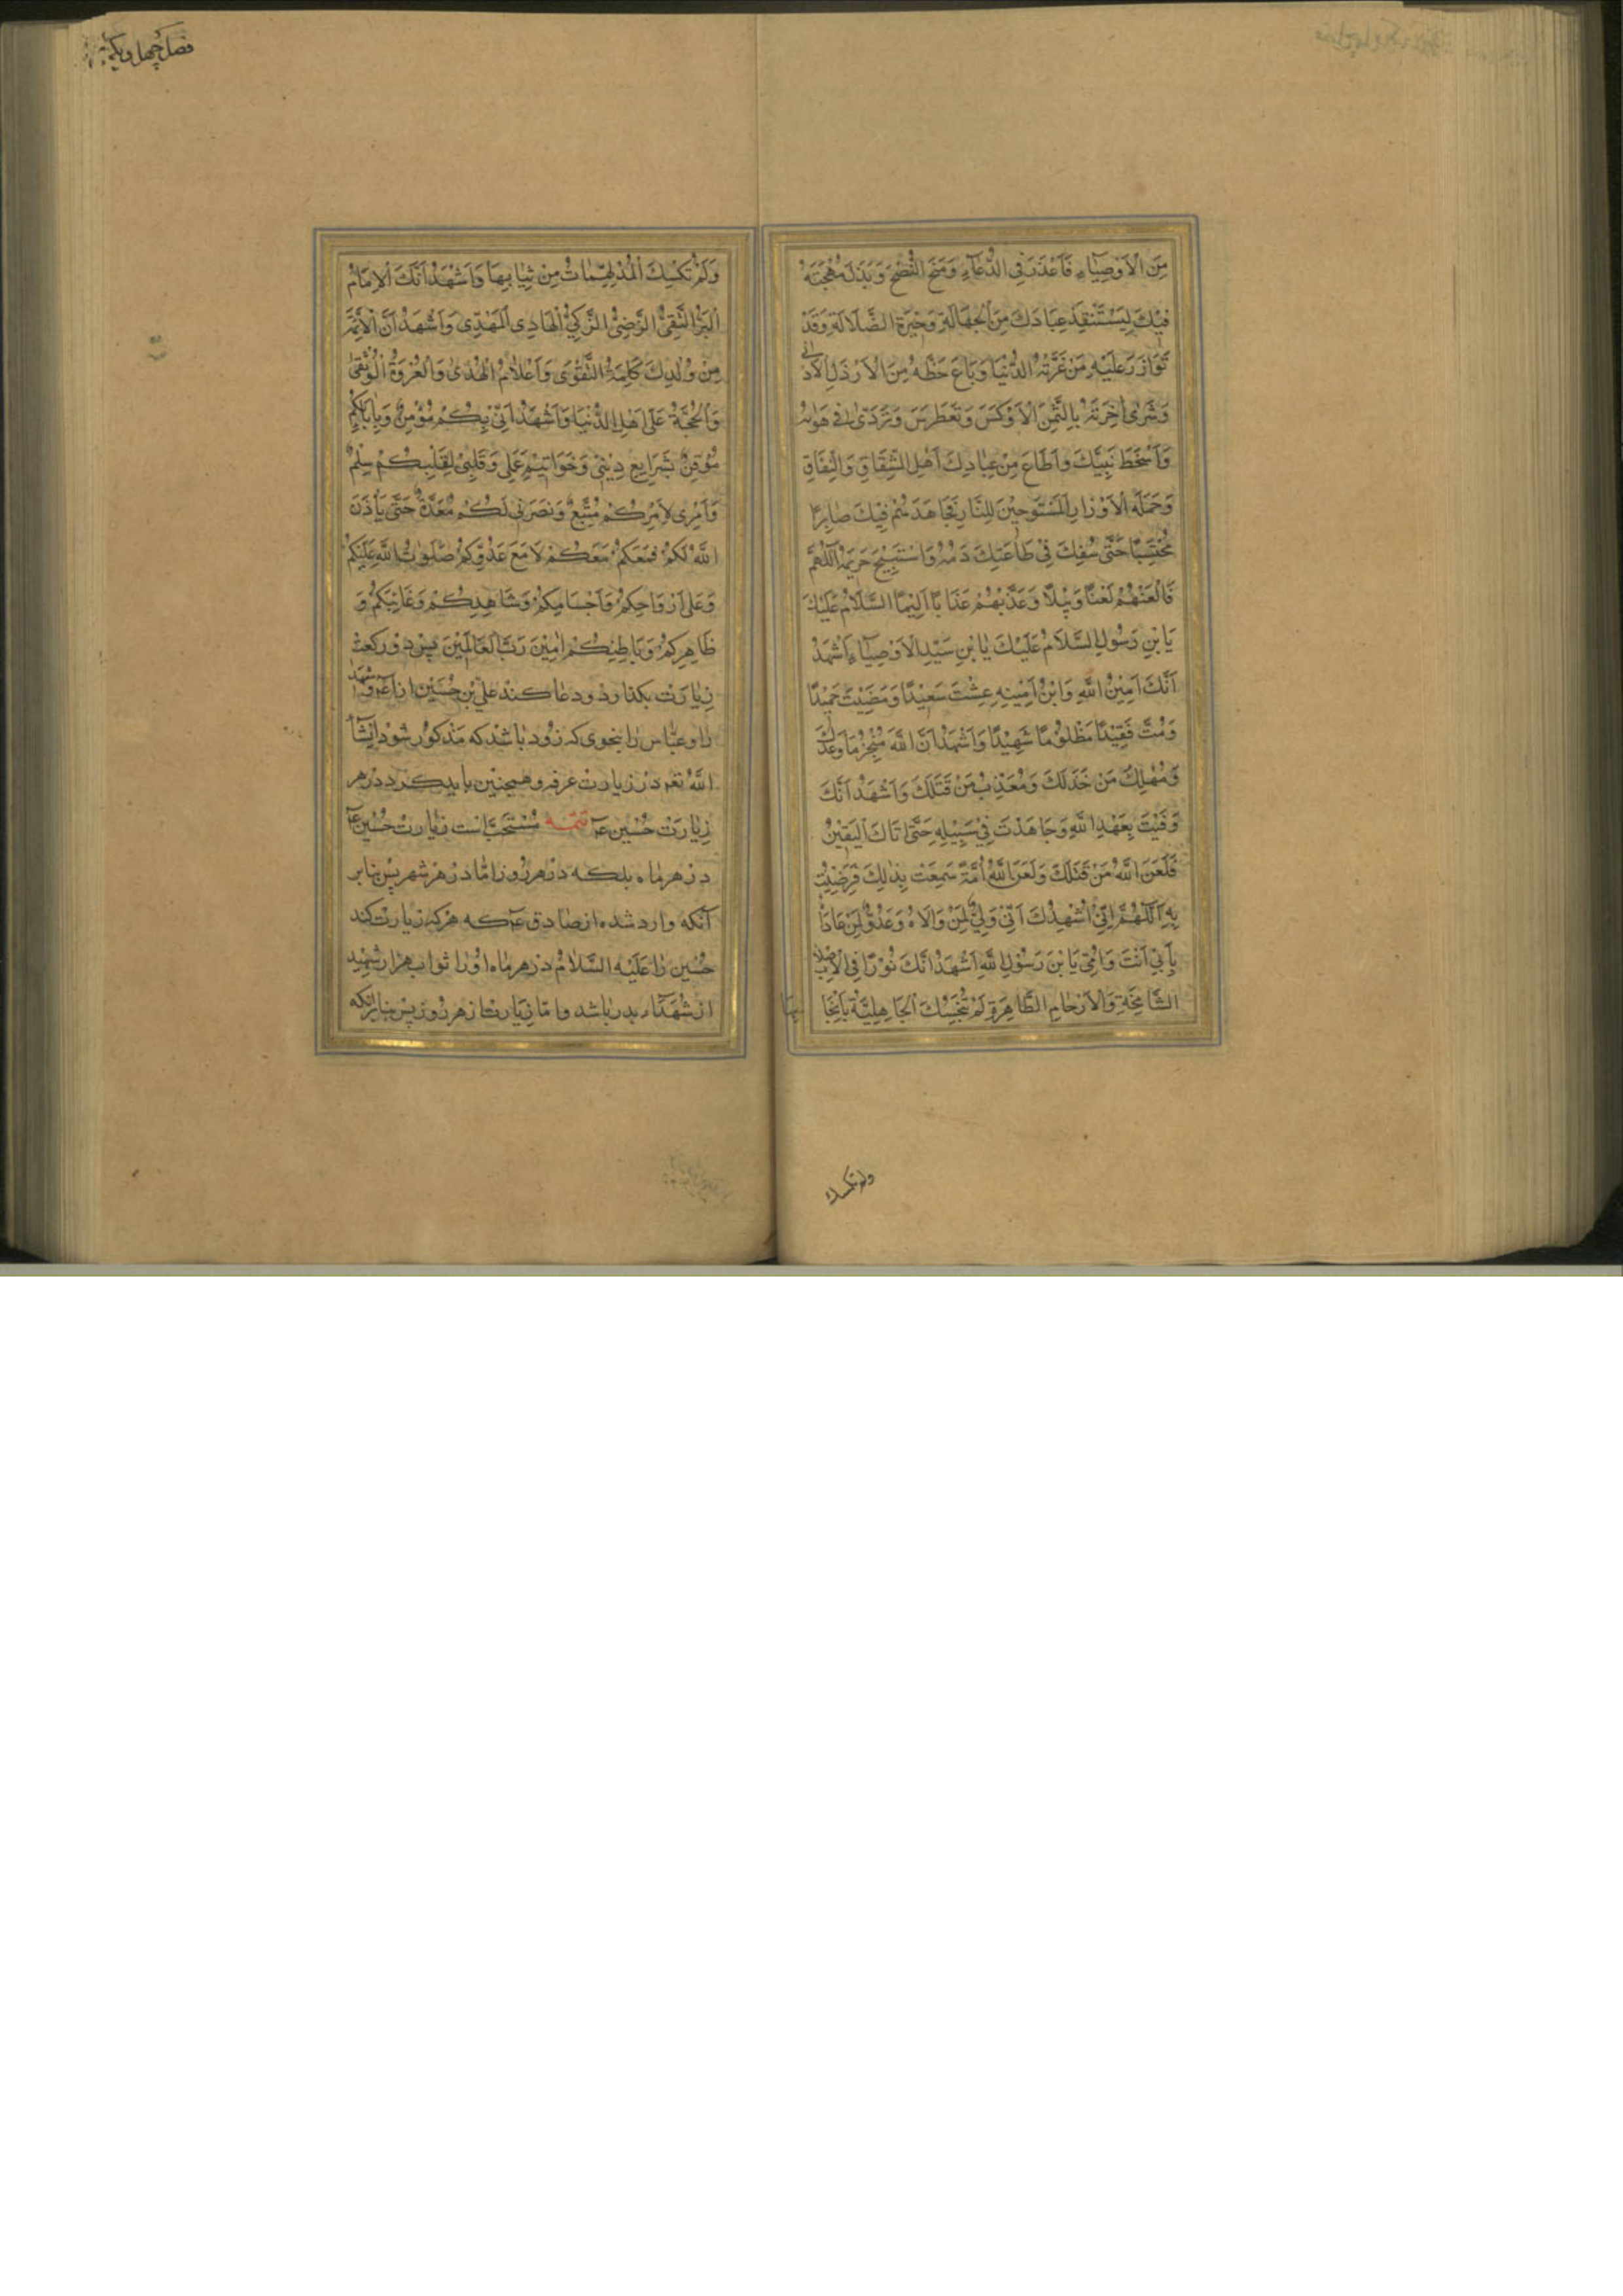 مِنَ الْاَوْصِيٰاءِ فَاَعْذَرَ فِي الدُّعَآءِ وَمَنَحَ النُّصْحَ وَبَذَلَ مُهْجَتَهُ
فِيْكَ لِيَسْتَنْقِذَ عِبَادَكَ مِنَ الْجَهَالَةِ وَحَيْرَةِ الضَّلَالَةِ وَقَدْ
تَوَازَرَ عَلَيْهِ مَنْ غَرَّتْهُ الدُّنْيَا وَبَاعَ حَظَّهُ مِنَ الْاَرْذَلِ الْاَدْنٰى
وَشَرٰى اٰخِرَتَهُ بِالثَّمَنِ الْاَوْكَسِ وَتَغَطْرَسَ وَتَرَدّٰى فِي هَوٰاهُ
وَاَسْخَطَ نَبِيَّكَ وَاَطَاعَ مِنْ عِبَادِكَ اَهْلَ الشِّقَاقِ وَالنِّفَاقِ
وَحَمَلَةَ الْاَوْزَارِ الْمُسْتَوْجِبِيْنَ لِلنَّارِ فَجَاهَدَهُمْ فِيْكَ صٰابِرًا
مُحْتَسِبًا حَتّٰى سُفِكَ فِيْ طٰاعَتِكَ دَمُهُ وَاسْتُبِيْحَ حَرِيْمُهُ اَللّٰهُمَّ
فَالْعَنْهُمْ لَعْنًا وَبِيْلًا وَعَذِّبْهُمْ عَذَابًا اَلِيْمًا السَّلَامُ عَلَيْكَ
يَا بْنَ رَسُوْلِ السَّلَامُ عَلَيْكَ يَا بْنَ سَيِّدِ الْاَوْصِيٰآءِ اَشْهَدُ
اَنَّكَ اَمِيْنُ اللّٰهِ وَابْنُ اَمِيْنِهِ عِشْتَ سَعِيْدًا وَمَضَيْتَ حَمِيْدًا
وَمُتَّ فَقِيْدًا مَظْلُوْمًا شَهِيْدًا وَاَشْهَدُ اَنَّ اللّٰهَ مُنْجِزٌ مَا وَعَدَكَ
وَمُهْلِكٌ مَنْ خَذَلَكَ وَمُعَذِّبٌ مَنْ قَتَلَكَ وَاَشْهَدُ اَنَّكَ
وَفَيْتَ بِعَهْدِ اللّٰهِ وَجَاهَدْتَ فِيْ سَبِيْلِهِ حَتّٰى اَتَاكَ الْيَقِيْنُ
فَلَعَنَ اللّٰهُ مَنْ قَتَلَكَ وَلَعَنَ اللّٰهُ اُمَّةً سَمِعَتْ بِذٰلِكَ فَرَضِيَتْ
بِهِ اَللّٰهُمَّ اِنِّيْ اُشْهِدُكَ اَنِّيْ وَلِيٌّ لِمَنْ وَالَاهُ وَعَدُوٌّ لِمَنْ عَادَاهُ
بِاَبِيْ اَنْتَ وَاُمِّيْ يَا بْنَ رَسُوْلِ اللّٰهِ اَشْهَدُ اَنَّكَ نُوْرًا فِي الْاَصْلٰابِ
الشَّامِخَةِ وَالْاَرْحَامِ الطَّاهِرَةِ لَمْ تُنَجِّسْكَ الْجَاهِلِيَّةُ بِاَنْجَا
سِهَا
ولم تكسبك
فصل چهل و یکم
وَلَمْ تَكْسِكَ الْمُدْلَهِمّٰاتُ مِنْ ثِيٰابِهَا وَاَشْهَدُ اَنَّكَ الْاِمَامُ
الْبَرُّ التَّقِيُّ الرَّضِيُّ الزَّكِيُّ الْهَادِي الْمَهْدِيُّ وَاَشْهَدُ اَنَّ الْاَئِمَّةَ
مِنْ وُلْدِكَ كَلِمَةُ التَّقْوٰى وَاَعْلَامُ الْهُدٰى وَالْعُرْوَةُ الْوُثْقٰى
وَالْحُجَّةُ عَلٰى اَهْلِ الدُّنْيَا وَاَشْهَدُ اَنِّيْ بِكُمْ مُؤْمِنٌ وَبِاِيَابِكُمْ
مُوْقِنٌ بِشَرَايِعِ دِيْنِيْ وَخَوَاتِيْمِ عَمَلِي وَقَلْبِيْ لِقَلْبِكُمْ سِلْمٌ
وَاَمْرِي لِاَمْرِكُمْ مُتَّبِعٌ وَنُصْرَتِي لَكُمْ مُعَدَّةٌ حَتّٰى يَأْذَنَ
اللّٰهُ لَكُمْ فَمَعَكُمْ مَعَكُمْ لَا مَعَ عَدُوِّكُمْ صَلَوٰاتُ اللّٰهِ عَلَيْكُمْ
وَعَلٰى اَرْوَاحِكُمْ وَاَجْسَامِكُمْ وَشَاهِدِكُمْ وَغَائِبِكُمْ وَ
ظَاهِرِكُمْ وَبَاطِنِكُمْ اٰمِيْنَ رَبَّ الْعَالَمِيْنَ پس دو رکعت
زیارت بکذارد و دعا کند علی بن حسین را و شهدا
را و عباس را بنحوی که زود باشد که مذکور شود انشآ
اللّٰه تعم در زیارت عرفه و همچنین باید کرد در هر
زیارت حسین ع تتمه مستحب است زیارت حسین ع
در هر ماه بلکه در هر روز اما در هر شهر پس بنابر
آنکه وارد شده از صادق ع که هر که زیارت کند
حسین را علیه السلام در هر ماه او را ثواب هزار شهید
از شهداء بدر باشد و اما زیارت در هر روز پس بنابر آنکه